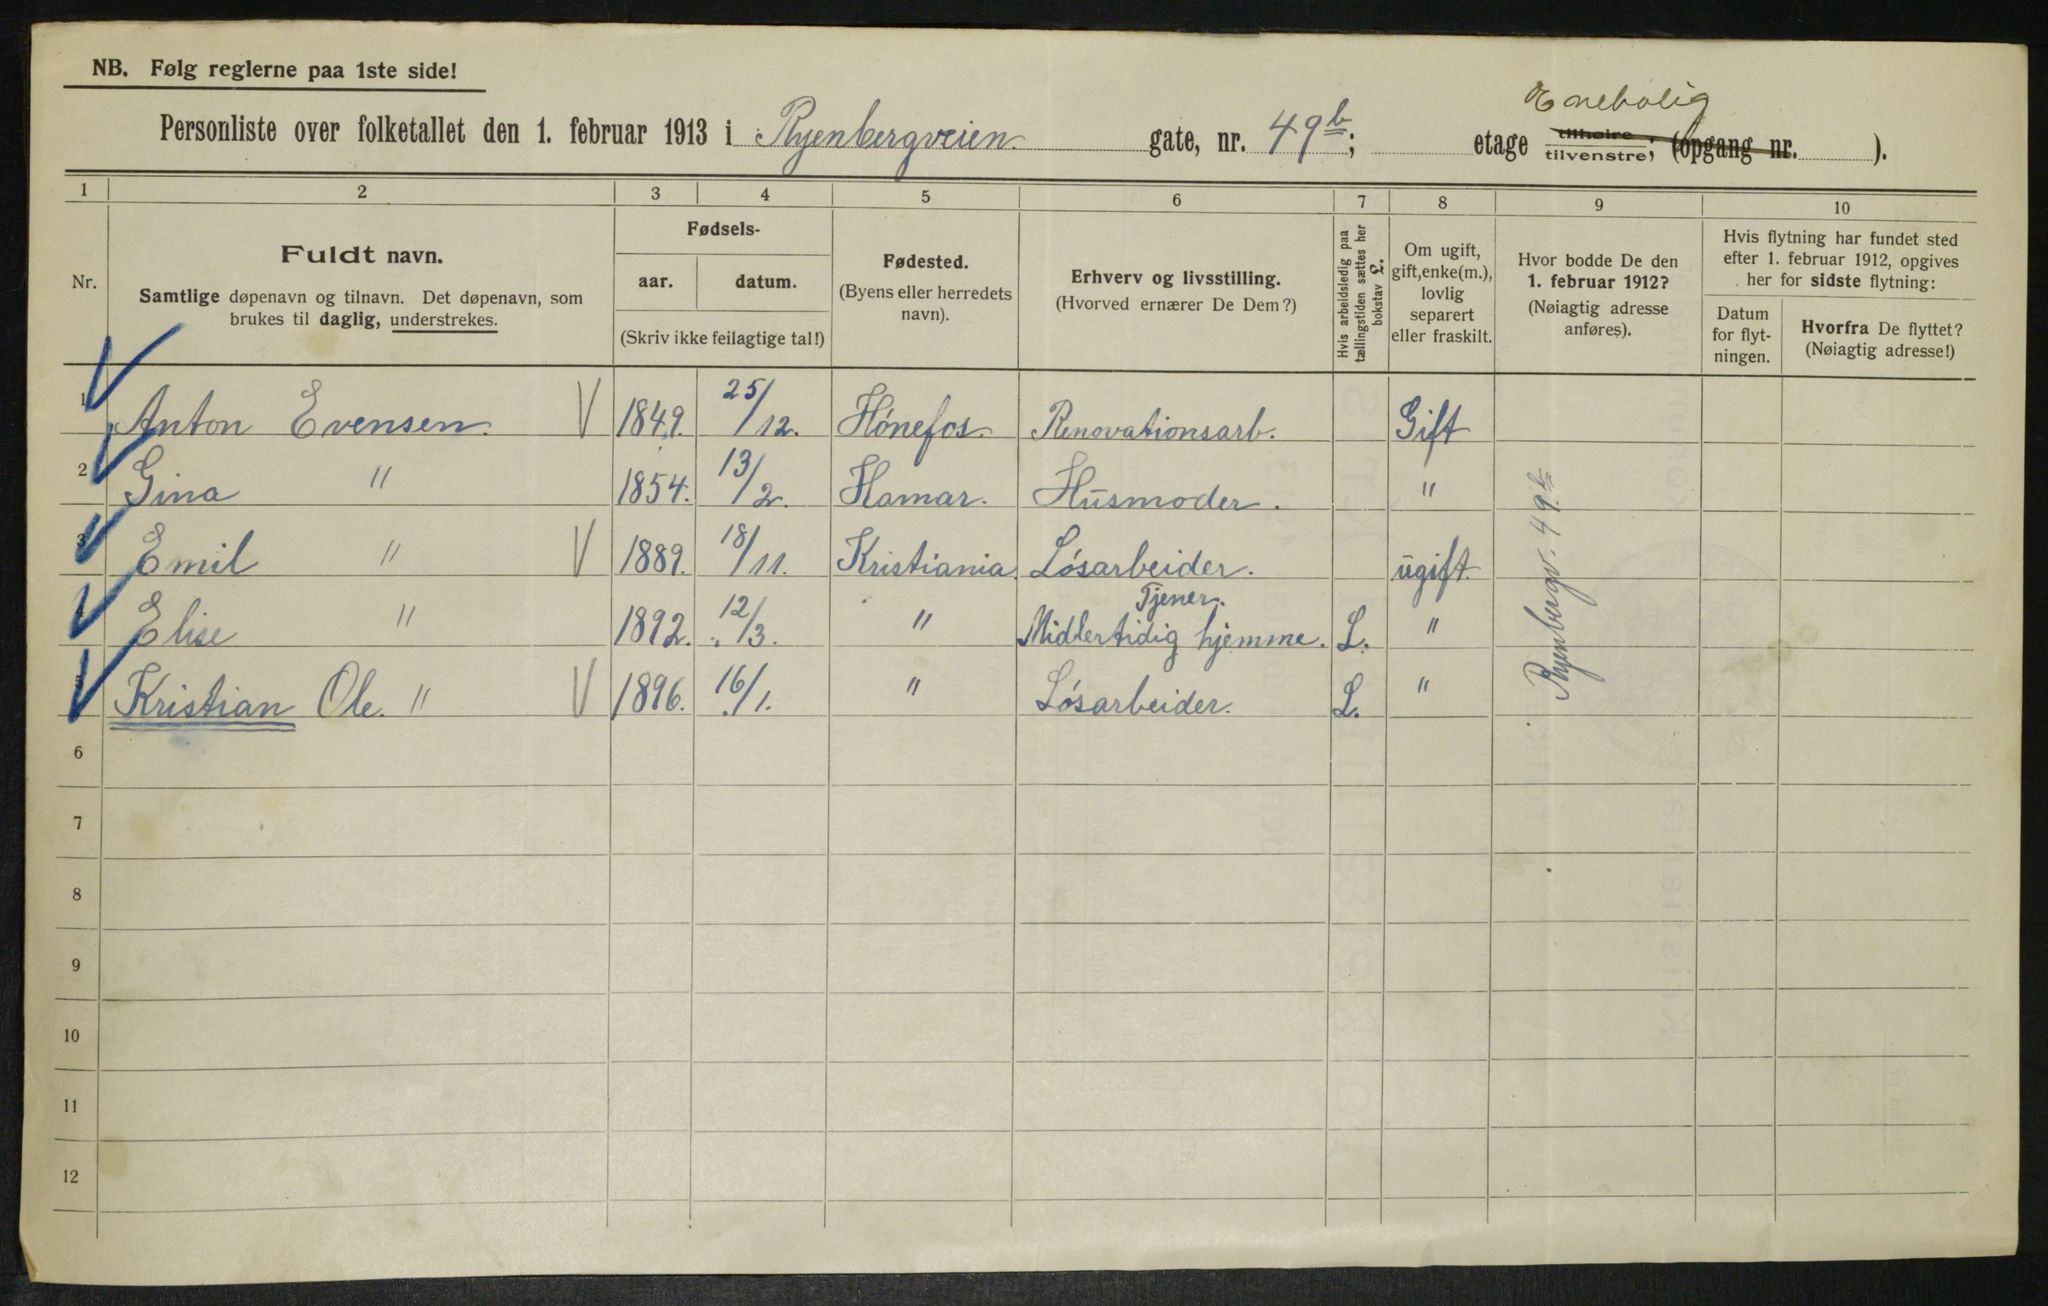 NB. Følg reglerne paa 1ste side!
Enebolig
Personliste over folketallet den 1. februar 1913 i Ryenbergveien gate, nr. 49b; etage tilhøire tilvenstre, (opgang nr. ).
1 2 3 4 5 6 7 8 9 10
Nr.
Fuldt navn.
Samtlige døpenavn og tilnavn. Det døpenavn, som
brukes til daglig, understrekes.
Fødsels-
aar. datum.
(Skriv ikke feilagtige tal!)
Fødested.
(Byens eller herredets
navn).
Erhverv og livsstilling.
(Hvorved ernærer De Dem?)
Hvis arbeidsledig paa
tællingstiden sættes her
bokstav L.
Om ugift,
gift, enke(m.),
lovlig
separert
eller fraskilt.
Hvor bodde De den
1. februar 1912?
(Nøiagtig adresse
anføres).
Hvis flytning har fundet sted
efter 1. februar 1912, opgives
her for sidste flytning:
Datum
for flyt-
ningen.
Hvorfra De flyttet?
(Nøiagtig adresse!)
1 Anton Evensen. V 1849. 25/12. Hónefos. Renovationsarb. Gift
2 Gina " 1854. 13/2. Hamar. Husmoder. "
3 Emil " V 1889. 18/11. Kristiania Lósarbeider. ugift.
Tjener.
4 Elise " 1892. 12/3. " Midlertidig hjemme. L. "
5 Kristian Ole. " V 1896. 16/1. " Lósarbeider. L. "
Ryenbergv. 49b
6
7
8
9
10
11
12